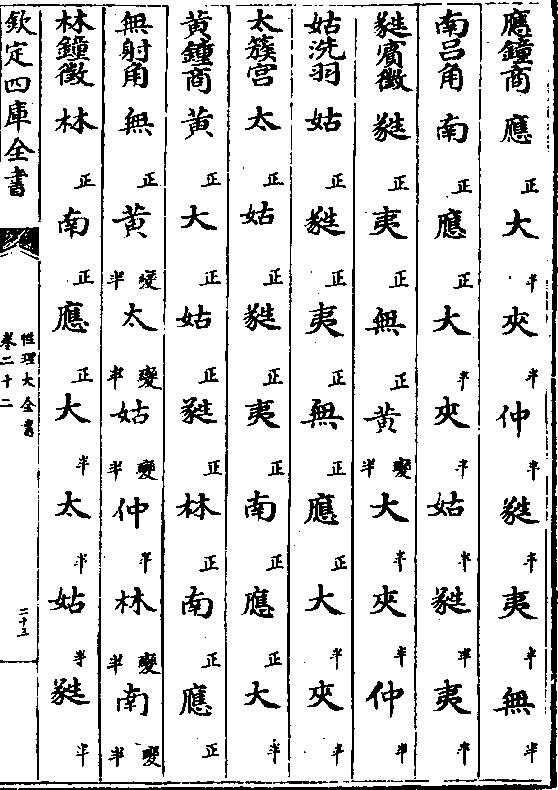 應鐘商 應正 大半 夾半 仲半 蕤半 夷半 無半
南呂角 南正 應正 大半 夾半 姑半 蕤半 夷半
蕤賓徵 蕤正 夷正 無正 黃變半 大半 夾半 仲半
姑洗羽 姑正 蕤正 夷正 無正 應正 大半 夾半
太簇宮 太正 姑正 蕤正 夷正 南正 應正 大半
黃鐘商 黃正 大正 姑正 蕤正 林正 南正 應正
無射角 無正 黃變半 太變半 姑變半 仲半 林變半 南變半
林鐘徵 林正 南正 應正 大半 太半 姑半 蕤半
欽定四庫全書
性理大全書
卷二十二
二十三